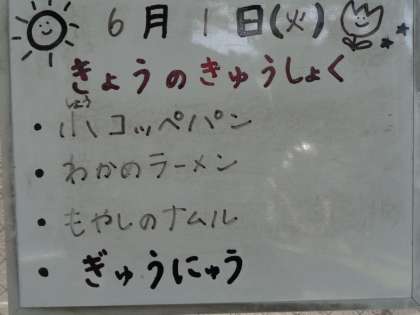 6月1日(火)
きょうのきゅうしょく
しょう
・小コッペパン
・わかのラーメン
・もやしのナムル
・ぎゅうにゅう